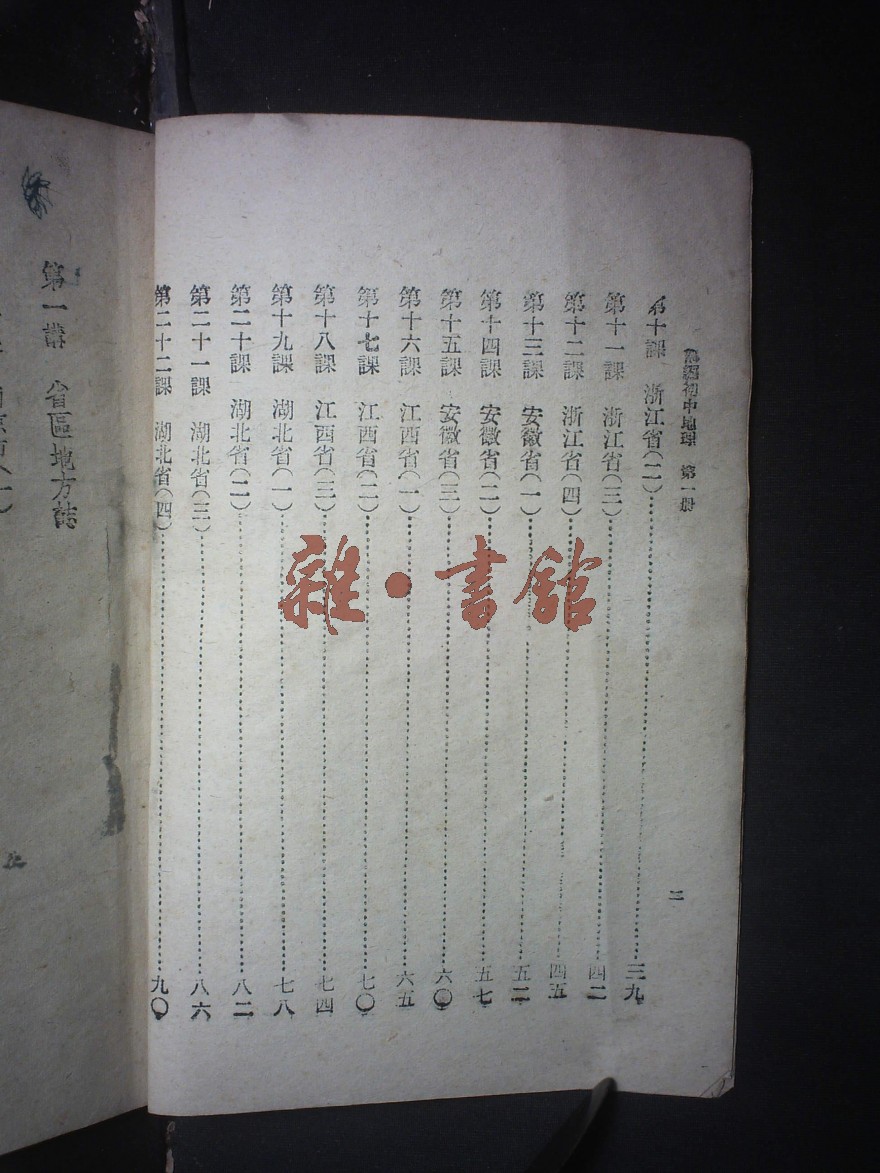 初中地理 第一册
二
第十課 浙江省(二)……三九
第十一課 浙江省(三)……四二
第十二課 浙江省(四)……四五
第十三課 安徽省(一)……五二
第十四課 安徽省(二)……五七
第十五課 安徽省(三)……六〇
第十六課 江西省(一)……六五
第十七課 江西省(二)……七〇
第十八課 江西省(三)……七四
第十九課 湖北省(一)……七八
第二十課 湖北省(二)……八二
第二十一課 湖北省(三)……八六
第二十二課 湖北省(四)……九〇
第一講 省區地方誌
雜·書館